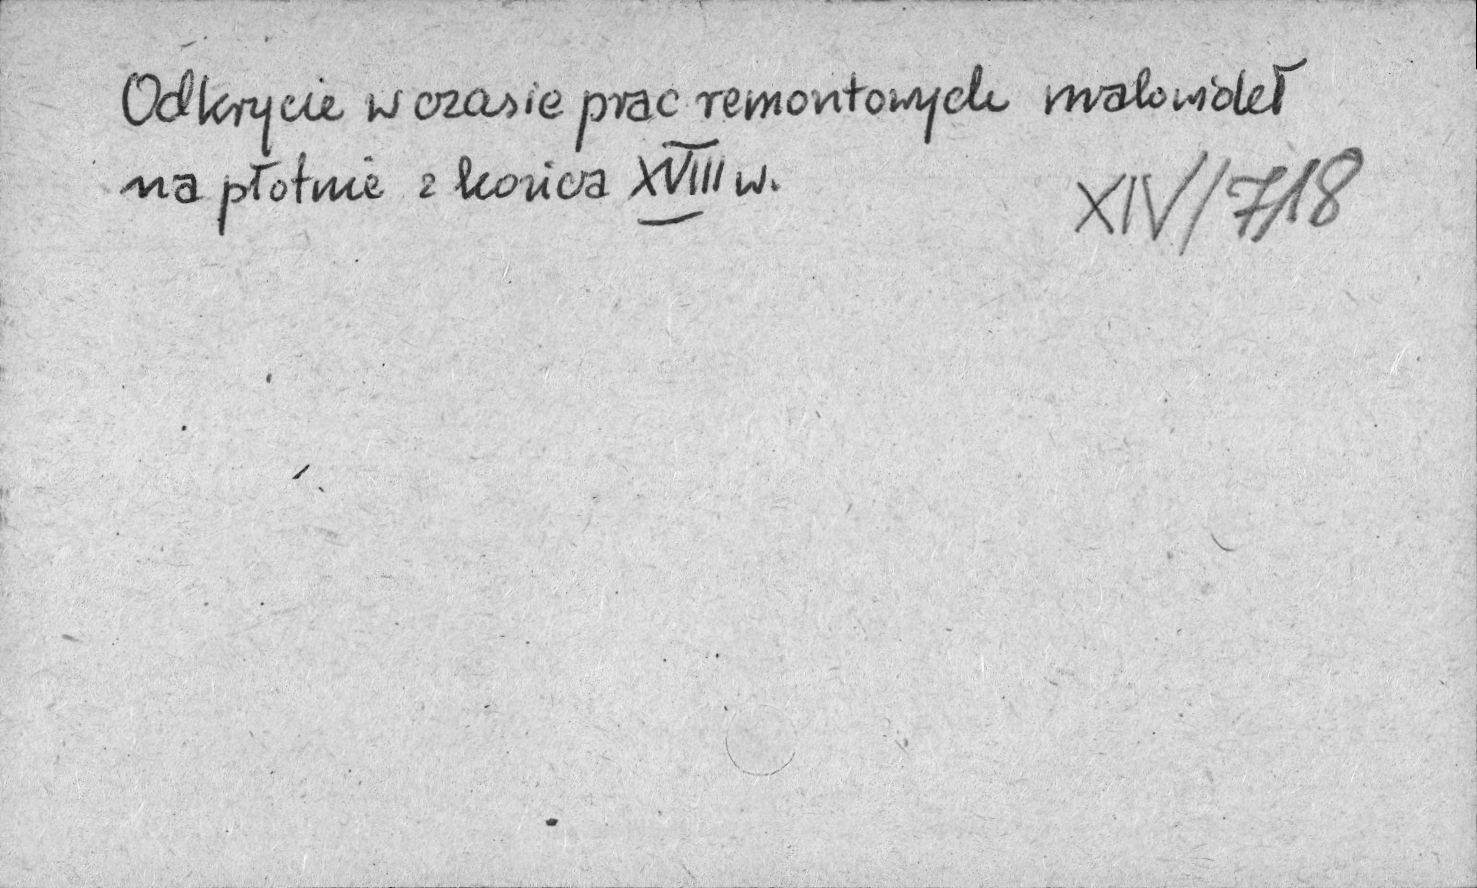 Odkrycie w czasie prac remontowych malowideł
na płótnie z końca XVIII w.
XIV/718